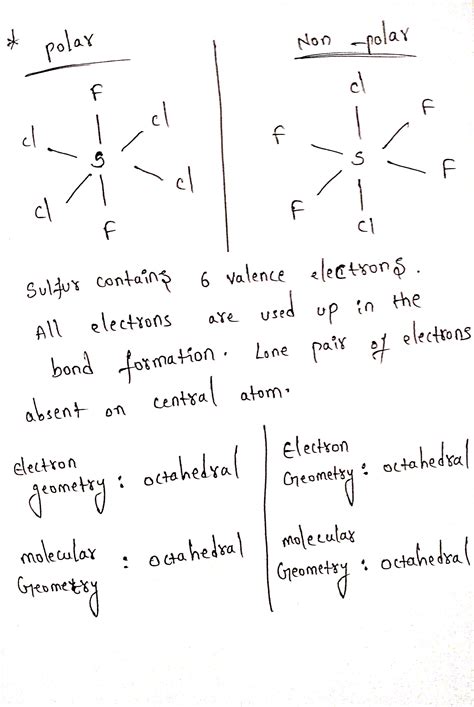 * polar
Non-polar
F
cl
cl
S
cl
cl
F
cl
F
F
S
F
F
Cl
Sulfur contains 6 valence electrons.
All electrons are used up in the
bond formation. Lone pair of electrons
absent on central atom.
Electron
geometry : octahedral
molecular
Geometry : octahedral
Electron
Geometry : octahedral
molecular
Geometry : octahedral